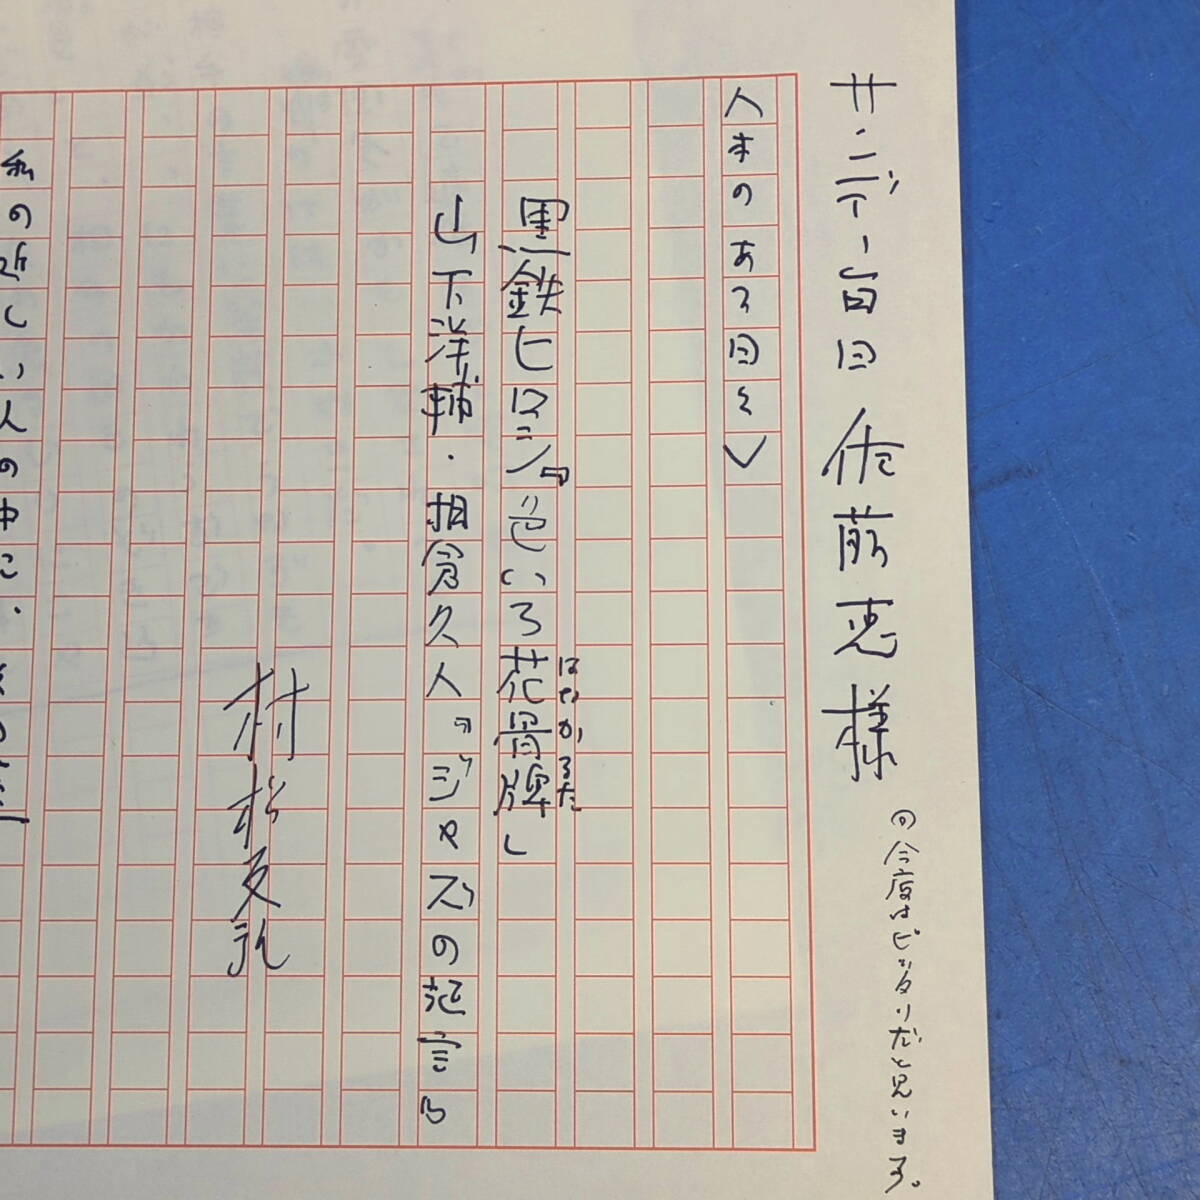 サンデー毎日 佐藤恵様
今度はピッタリだと思います。
<本のある日々>
黒鉄ヒロシ『色いろ花骨牌』
はなかるた
山下洋輔・相倉久人『ジャズの証言』
村松友視
私の近しい人の中に、